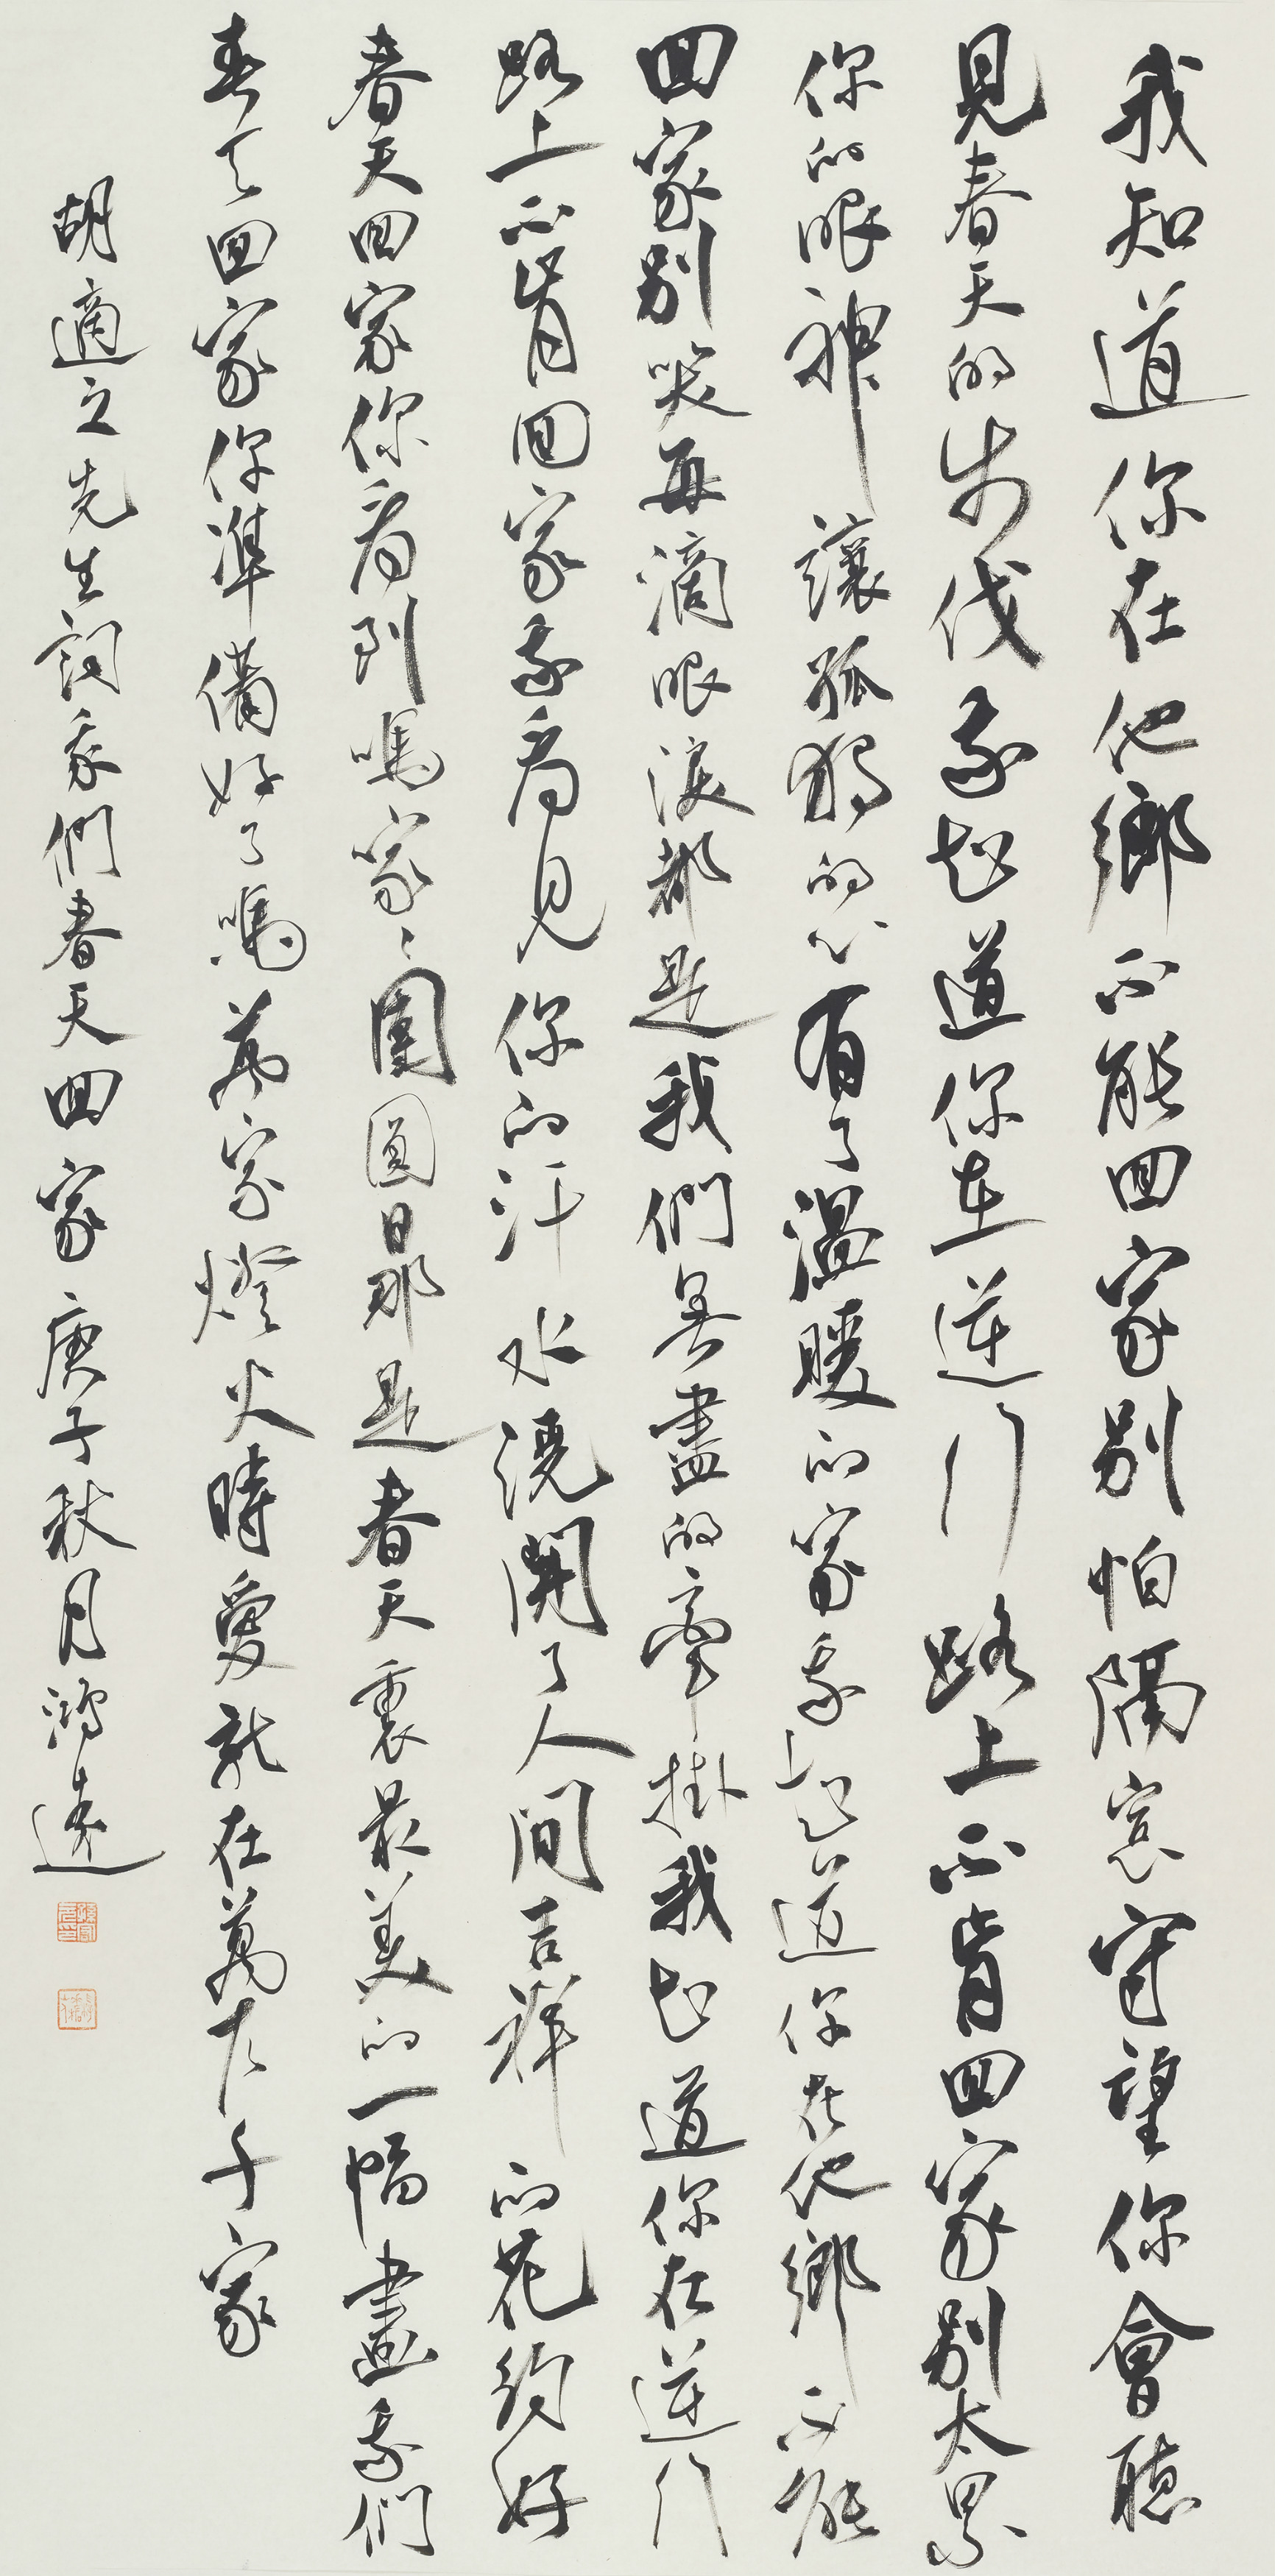 我知道你在他鄉不能回家別怕隔窓守望你會聽
見春天的步伐我知道你在逆行路上不肯回家別太累
你的眼神讓孤獨的心有了溫暖的家我知道你在他鄉不能
回家別哭每滴眼淚都是我們無盡的牽掛我知道你在逆行
路上不肯回家我看見你的汗水澆開了人間吉祥的花約好
春天回家你看到嗎家〻團圓日那是春天裏最美的一幅畫我們
春天回家你準備好了嗎萬家燈火時愛就在萬户千家
胡適之先生詞我們春天回家 庚子秋月鴻遠